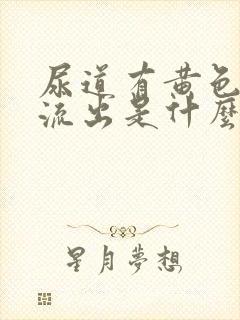 尿道有黄色
流出是什麼
星月夢想